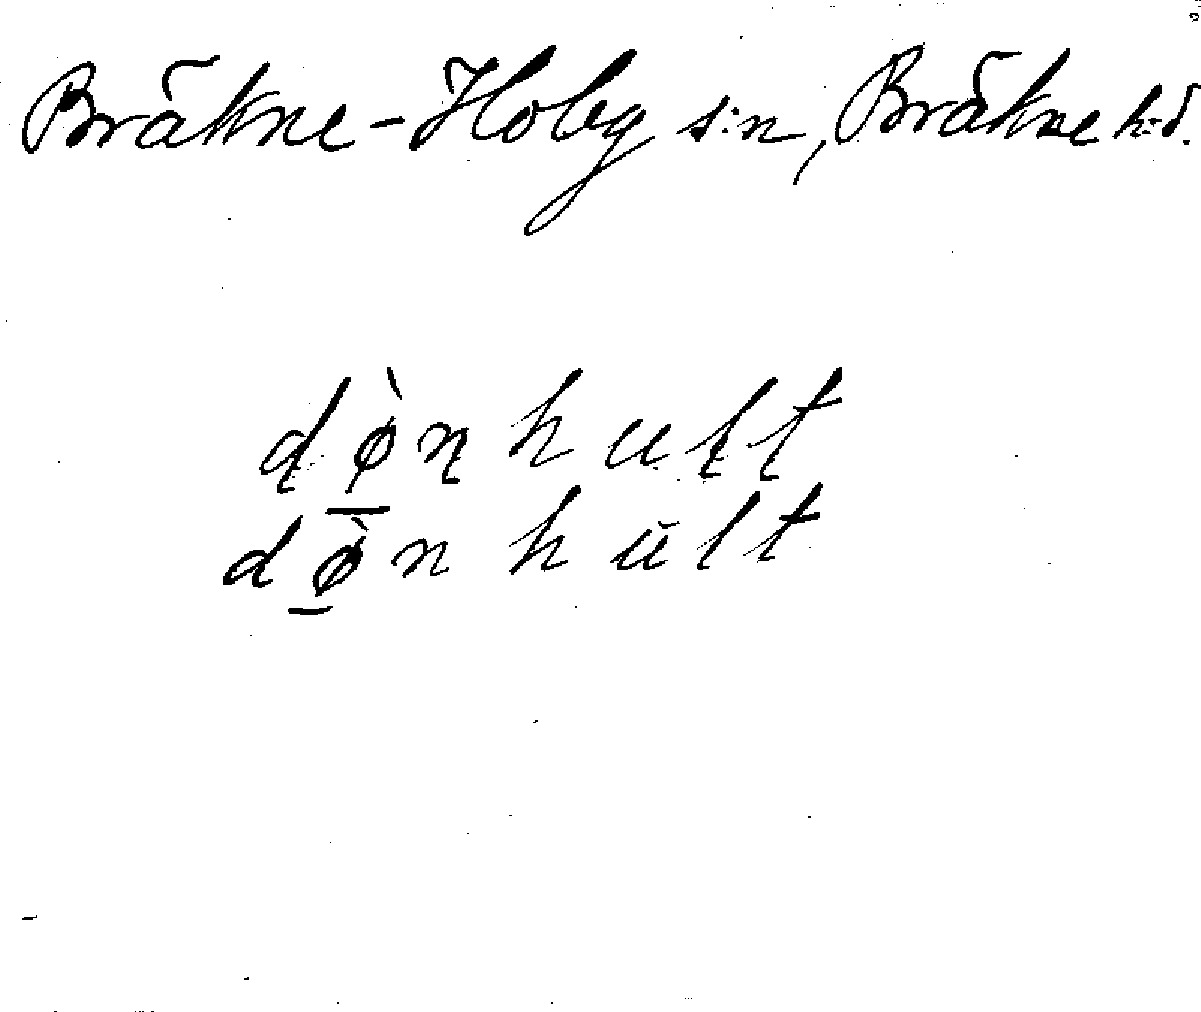 Bräkne-Hoby s:n, Bräkne h:d.
dø̲̀nhult
dø̲̀nhult